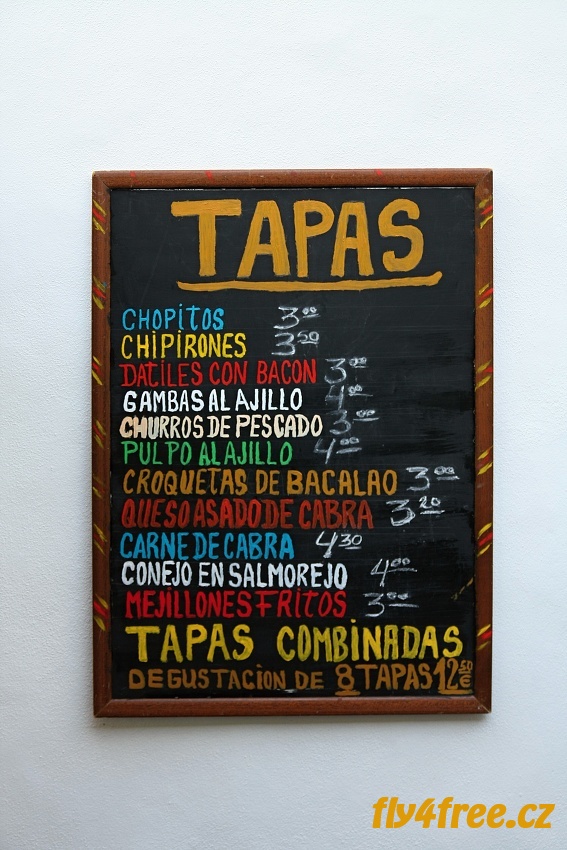 TAPAS
CHOPITOS 3.00
CHIPIRONES 3.50
DATILES CON BACON 3.00
GAMBAS AL AJILLO 4.00
CHURROS DE PESCADO 3.00
PULPO AL AJILLO 4.00
CROQUETAS DE BACALAO 3.00
QUESO ASADO DE CABRA 3.20
CARNE DE CABRA 4.30
CONEJO EN SALMOREJO 4.00
MEJILLONES FRITOS 3.00
TAPAS COMBINADAS
DEGUSTACIÒN DE 8 TAPAS 12.50 €
fly4free.cz